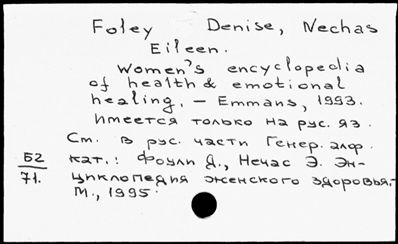 Foley Denise, Nechas
Eileen.
Women's encyclopedia
of health & emotional
healing. – Emmans, 1993.
Имеется только на рус. яз.
См. в рус. части Генер. алф.
Б2 кат.: Фоули Д., Нечас Э. Эн-
71. циклопедия женского здоровья.-
М., 1995.